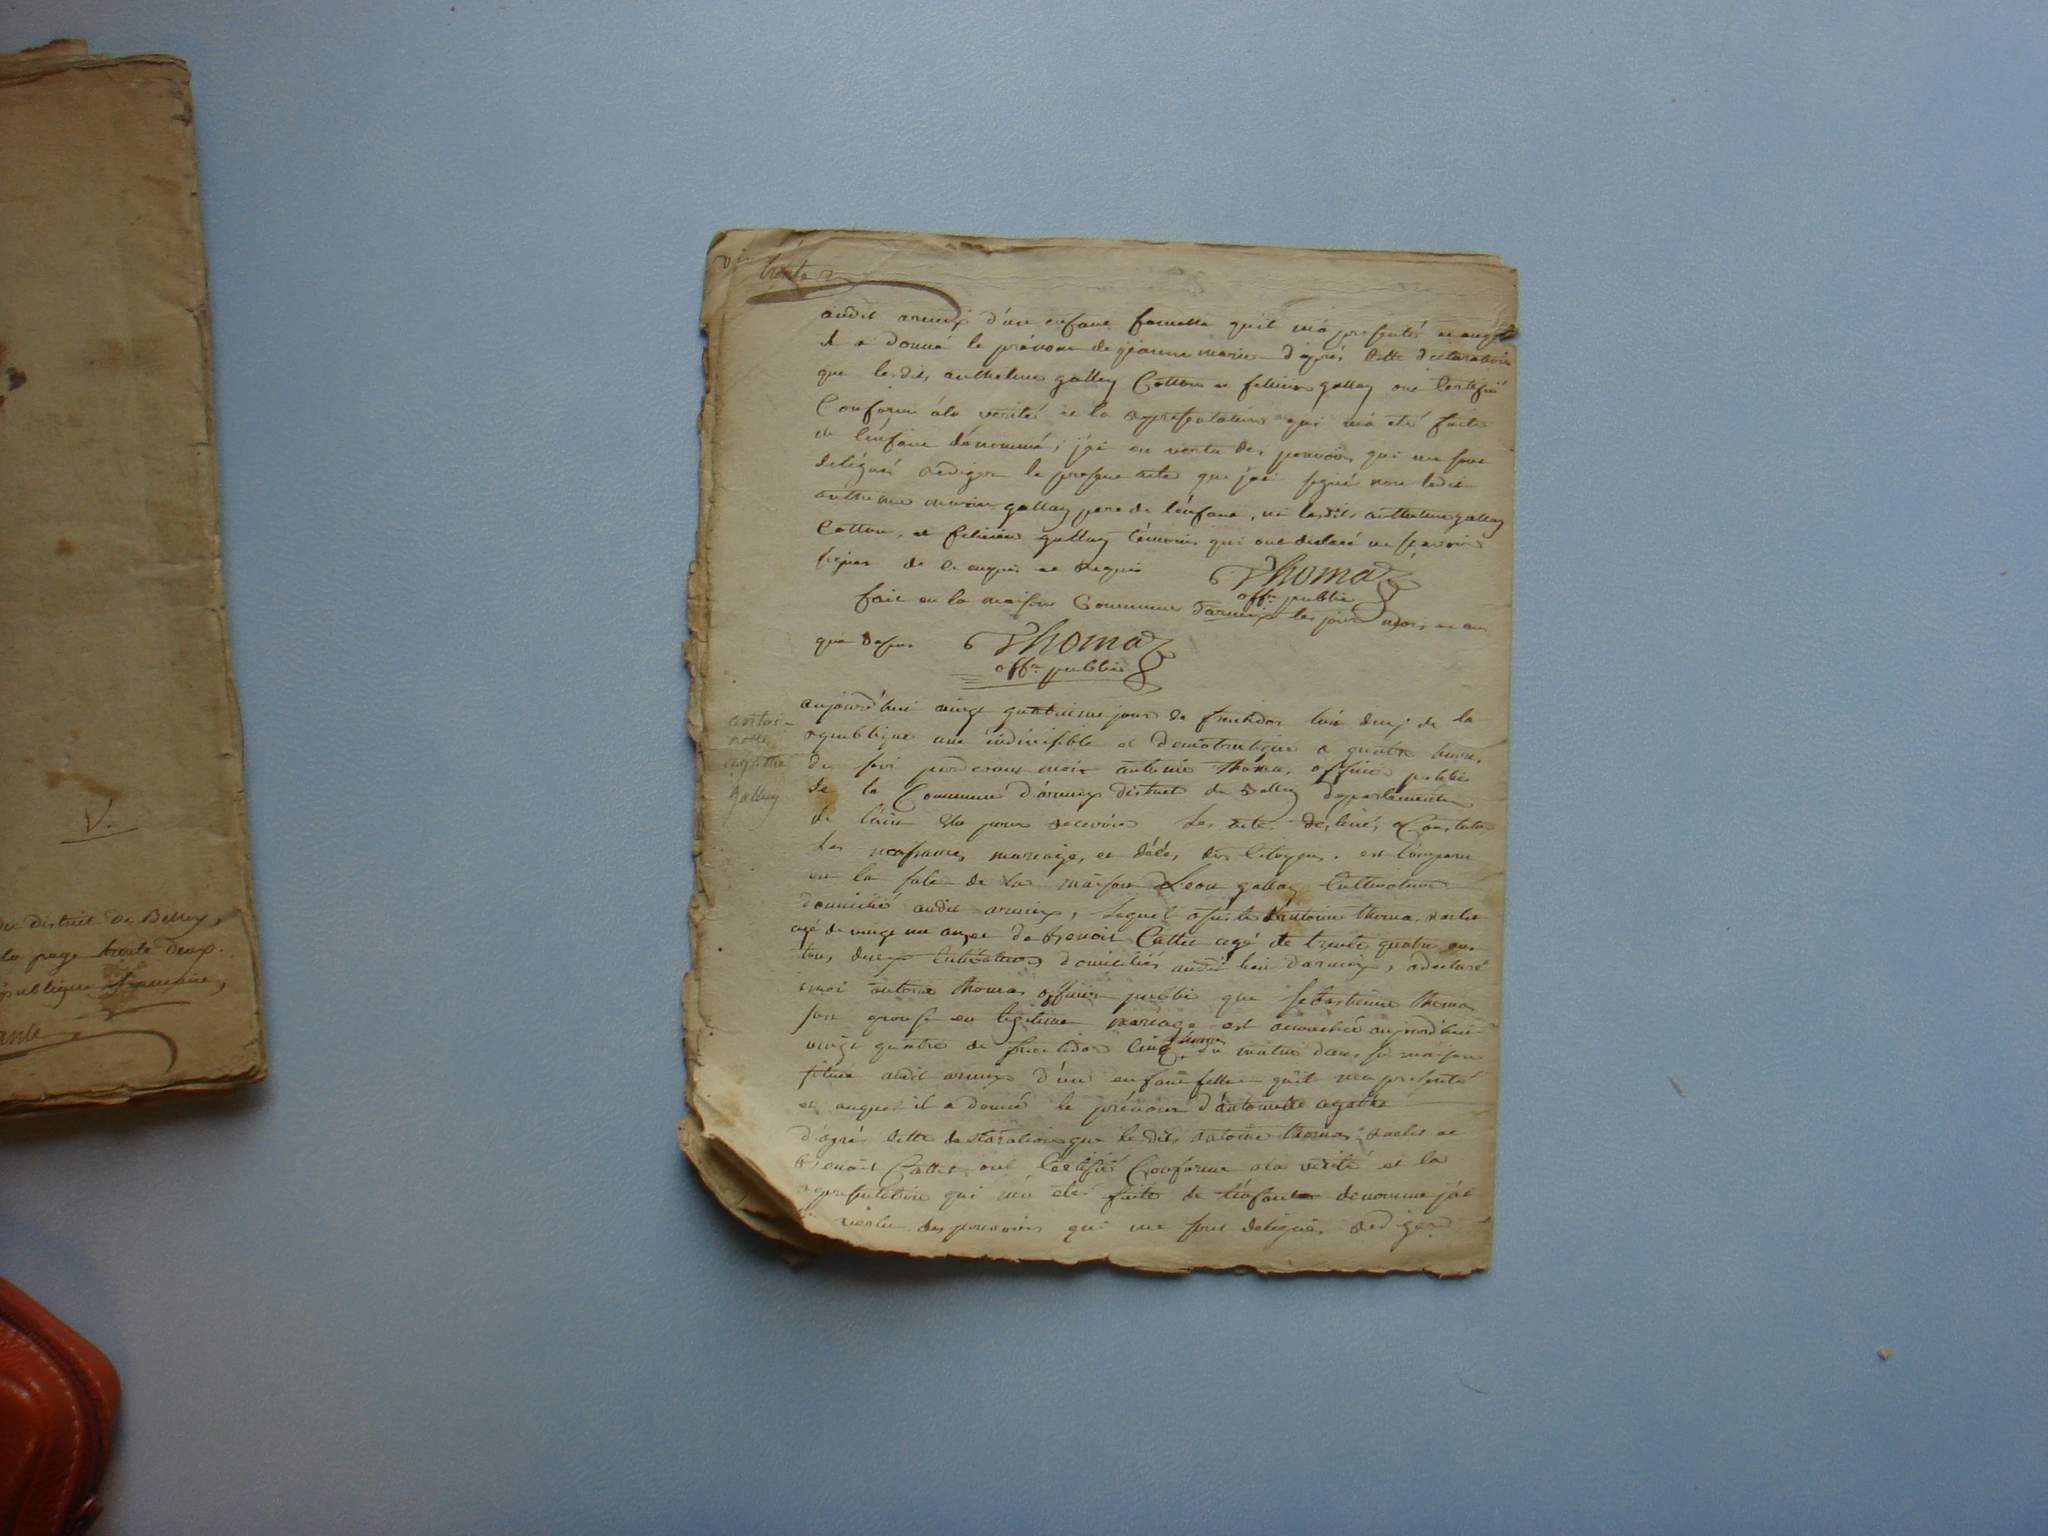 V.
district de Belley,
la page trente deux.
république francaise,
trente
audit armix d'un enfant femelle quil m'a presenté et auquel
il a donné le prénom de jeanne marie d'aprés cette declaration
que lesdits anthelme gallay Cotton et felicien gallay ont Certifié
Conforme á la verité et la representation qui m'a eté faite
de l'enfant dénommé, j'ai en vertu des pouvoirs qui me sont
delégués rediger le present acte que j'ai signé non ledit
gallay pere de l'enfant, ni lesdits anthelme gallay
Cotton, et felicien gallay témoins qui ont declaré ne scavoir
signer de ce enquis et requis Thomas
offr. public
fait en la maison Commune d'armix les jour mois et an
que dessus Thomas
offr. public
antoi-
nette
agathe
Gallay
aujourd'hui vingt quatrieme jour de fructidor l'an deux de la
republique une indivisible et democratique a quatre heures
du soir pardevant moi antoine thomas officier public
de la Commune d'armix district de Belley departement
de l'ain elu pour recevoir les actes destinés a Constater
les naissances, mariages, et décés des Citoyens. est Comparu
en la sale de la maison Leon gallay Cultivateur
domicilié audit armix, lequel assisté d'antoine thomas
agé de vingt un ans et de benoit Cattet agé de trente quatre ans
tous deux Cultivateurs domiciliés audit lieu d'armix, a declaré
a moi antoine thomas officier public que sebastienne thomas
son epouse en legitime mariage est accouchée aujourd'hui
vingt quatre de fructidor cinq heures du matin dans sa maison
situee audit armix d'un enfant femelle quil m'a presenté
et auquel il a donné le prénom d'antoinette agathe
d'aprés cette declaration que lesdits antoine thomas et
benoit Cattet ont Certifié Conforme a la verité et la
representation qui m'a eté faite de l'enfant denommé j'ai
en vertu des pouvoirs qui me sont delegués rediger